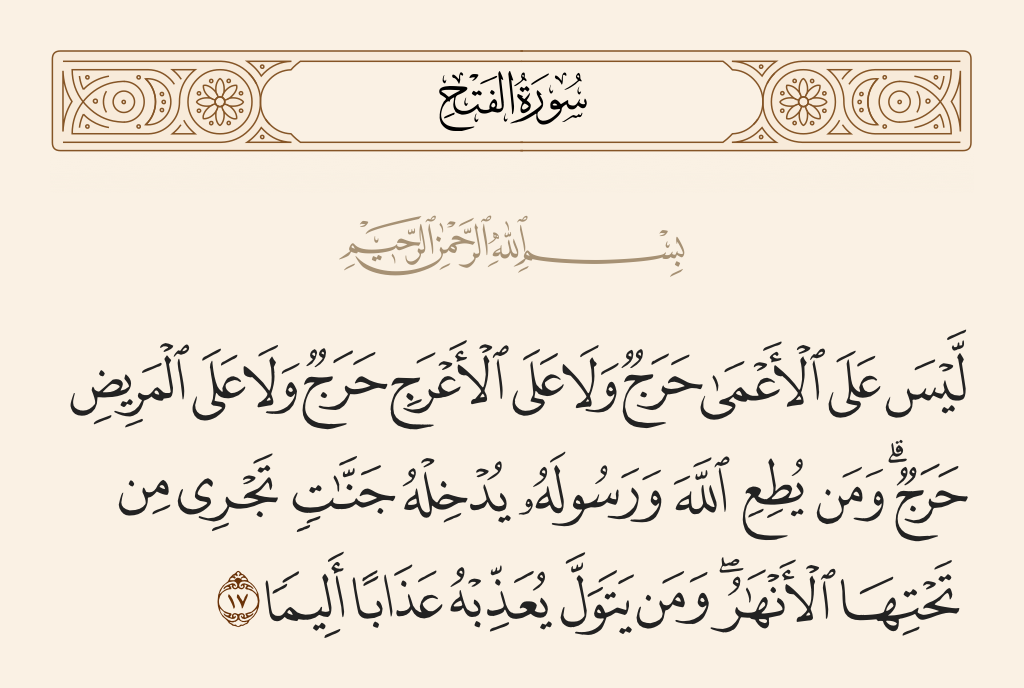 سُورَةُ الفَتۡحِ
بِسۡمِ ٱللَّهِ ٱلرَّحۡمَٰنِ ٱلرَّحِيمِ
لَّيۡسَ عَلَى ٱلۡأَعۡمَىٰ حَرَجٞ وَلَا عَلَى ٱلۡأَعۡرَجِ حَرَجٞ وَلَا عَلَى ٱلۡمَرِيضِ
حَرَجٞۗ وَمَن يُطِعِ ٱللَّهَ وَرَسُولَهُۥ يُدۡخِلۡهُ جَنَّٰتٖ تَجۡرِي مِن
تَحۡتِهَا ٱلۡأَنۡهَٰرُۖ وَمَن يَتَوَلَّ يُعَذِّبۡهُ عَذَابًا أَلِيمٗا ١٧